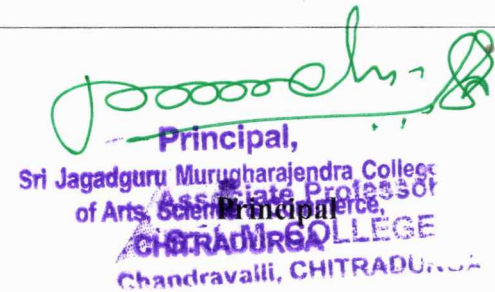 Principal,
Sri Jagadguru Murugharajendra College
of Arts, Science Commerce,
CHITRADURGA
Associate Professor
COLLEGE
Chandravalli, CHITRADU
Principal